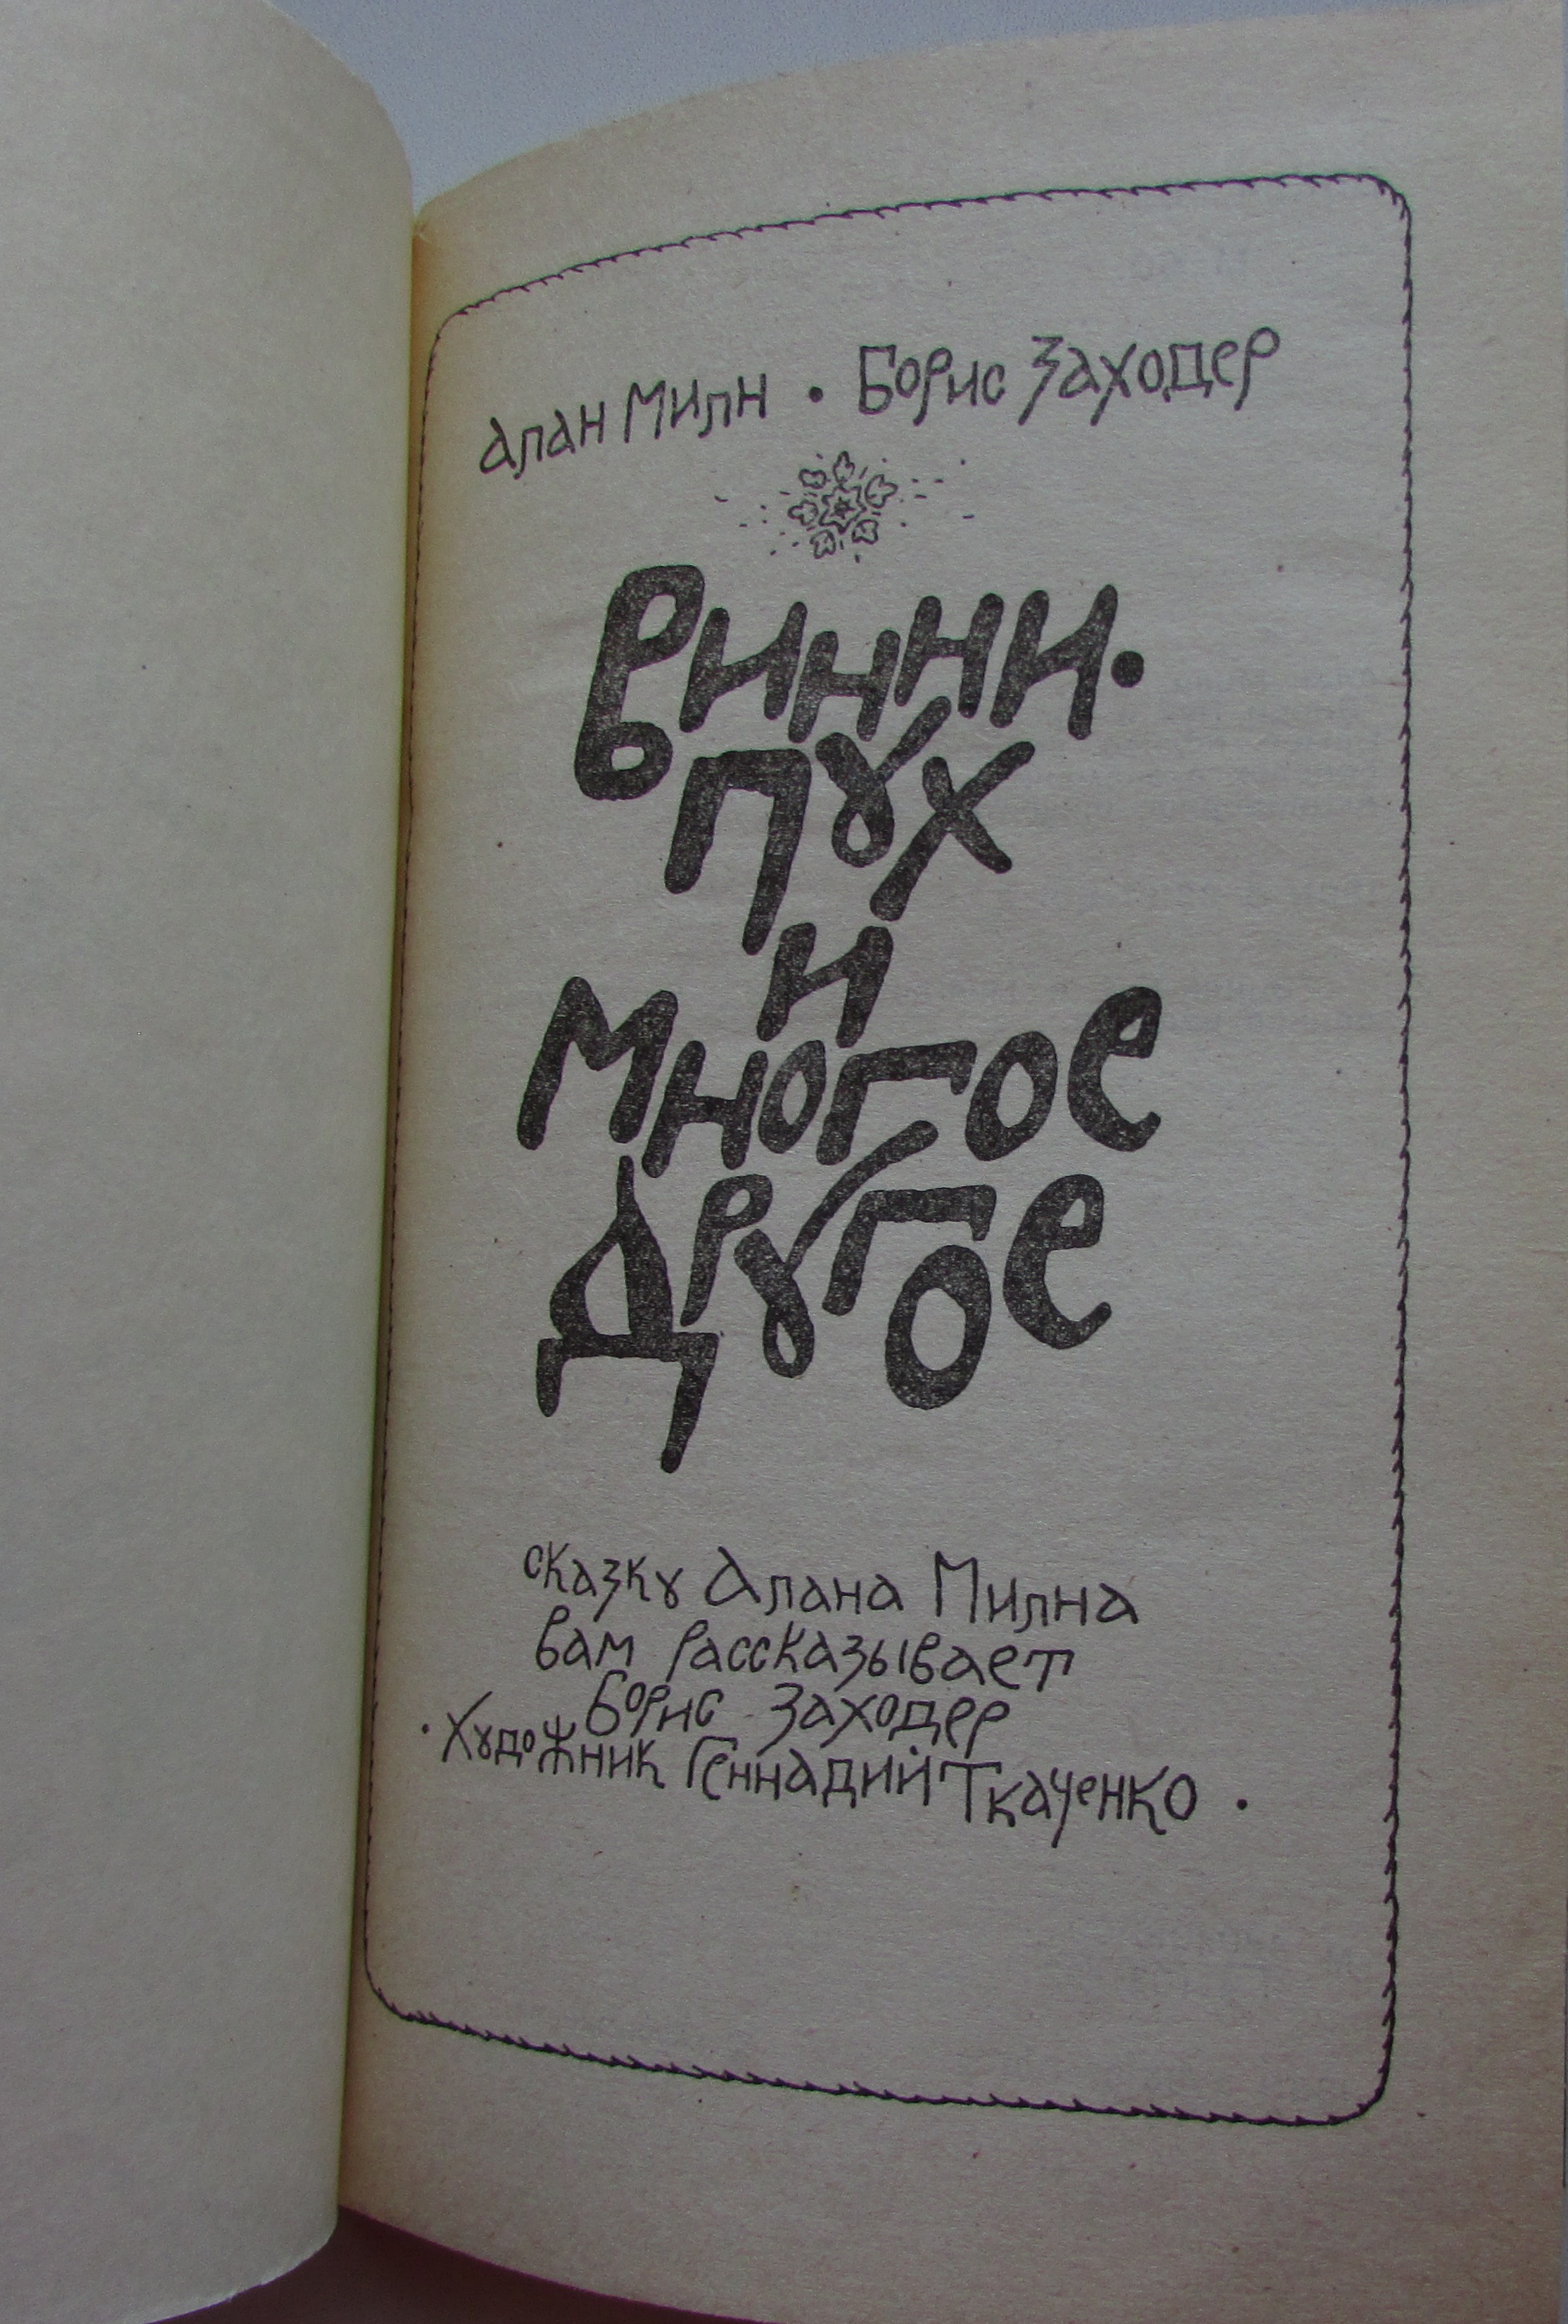 Алан Милн • Борис Заходер
Винни-
Пух
и
многое
другое
сказку Алана Милна
вам рассказывает
Борис Заходер
• Художник Геннадий Ткаченко •